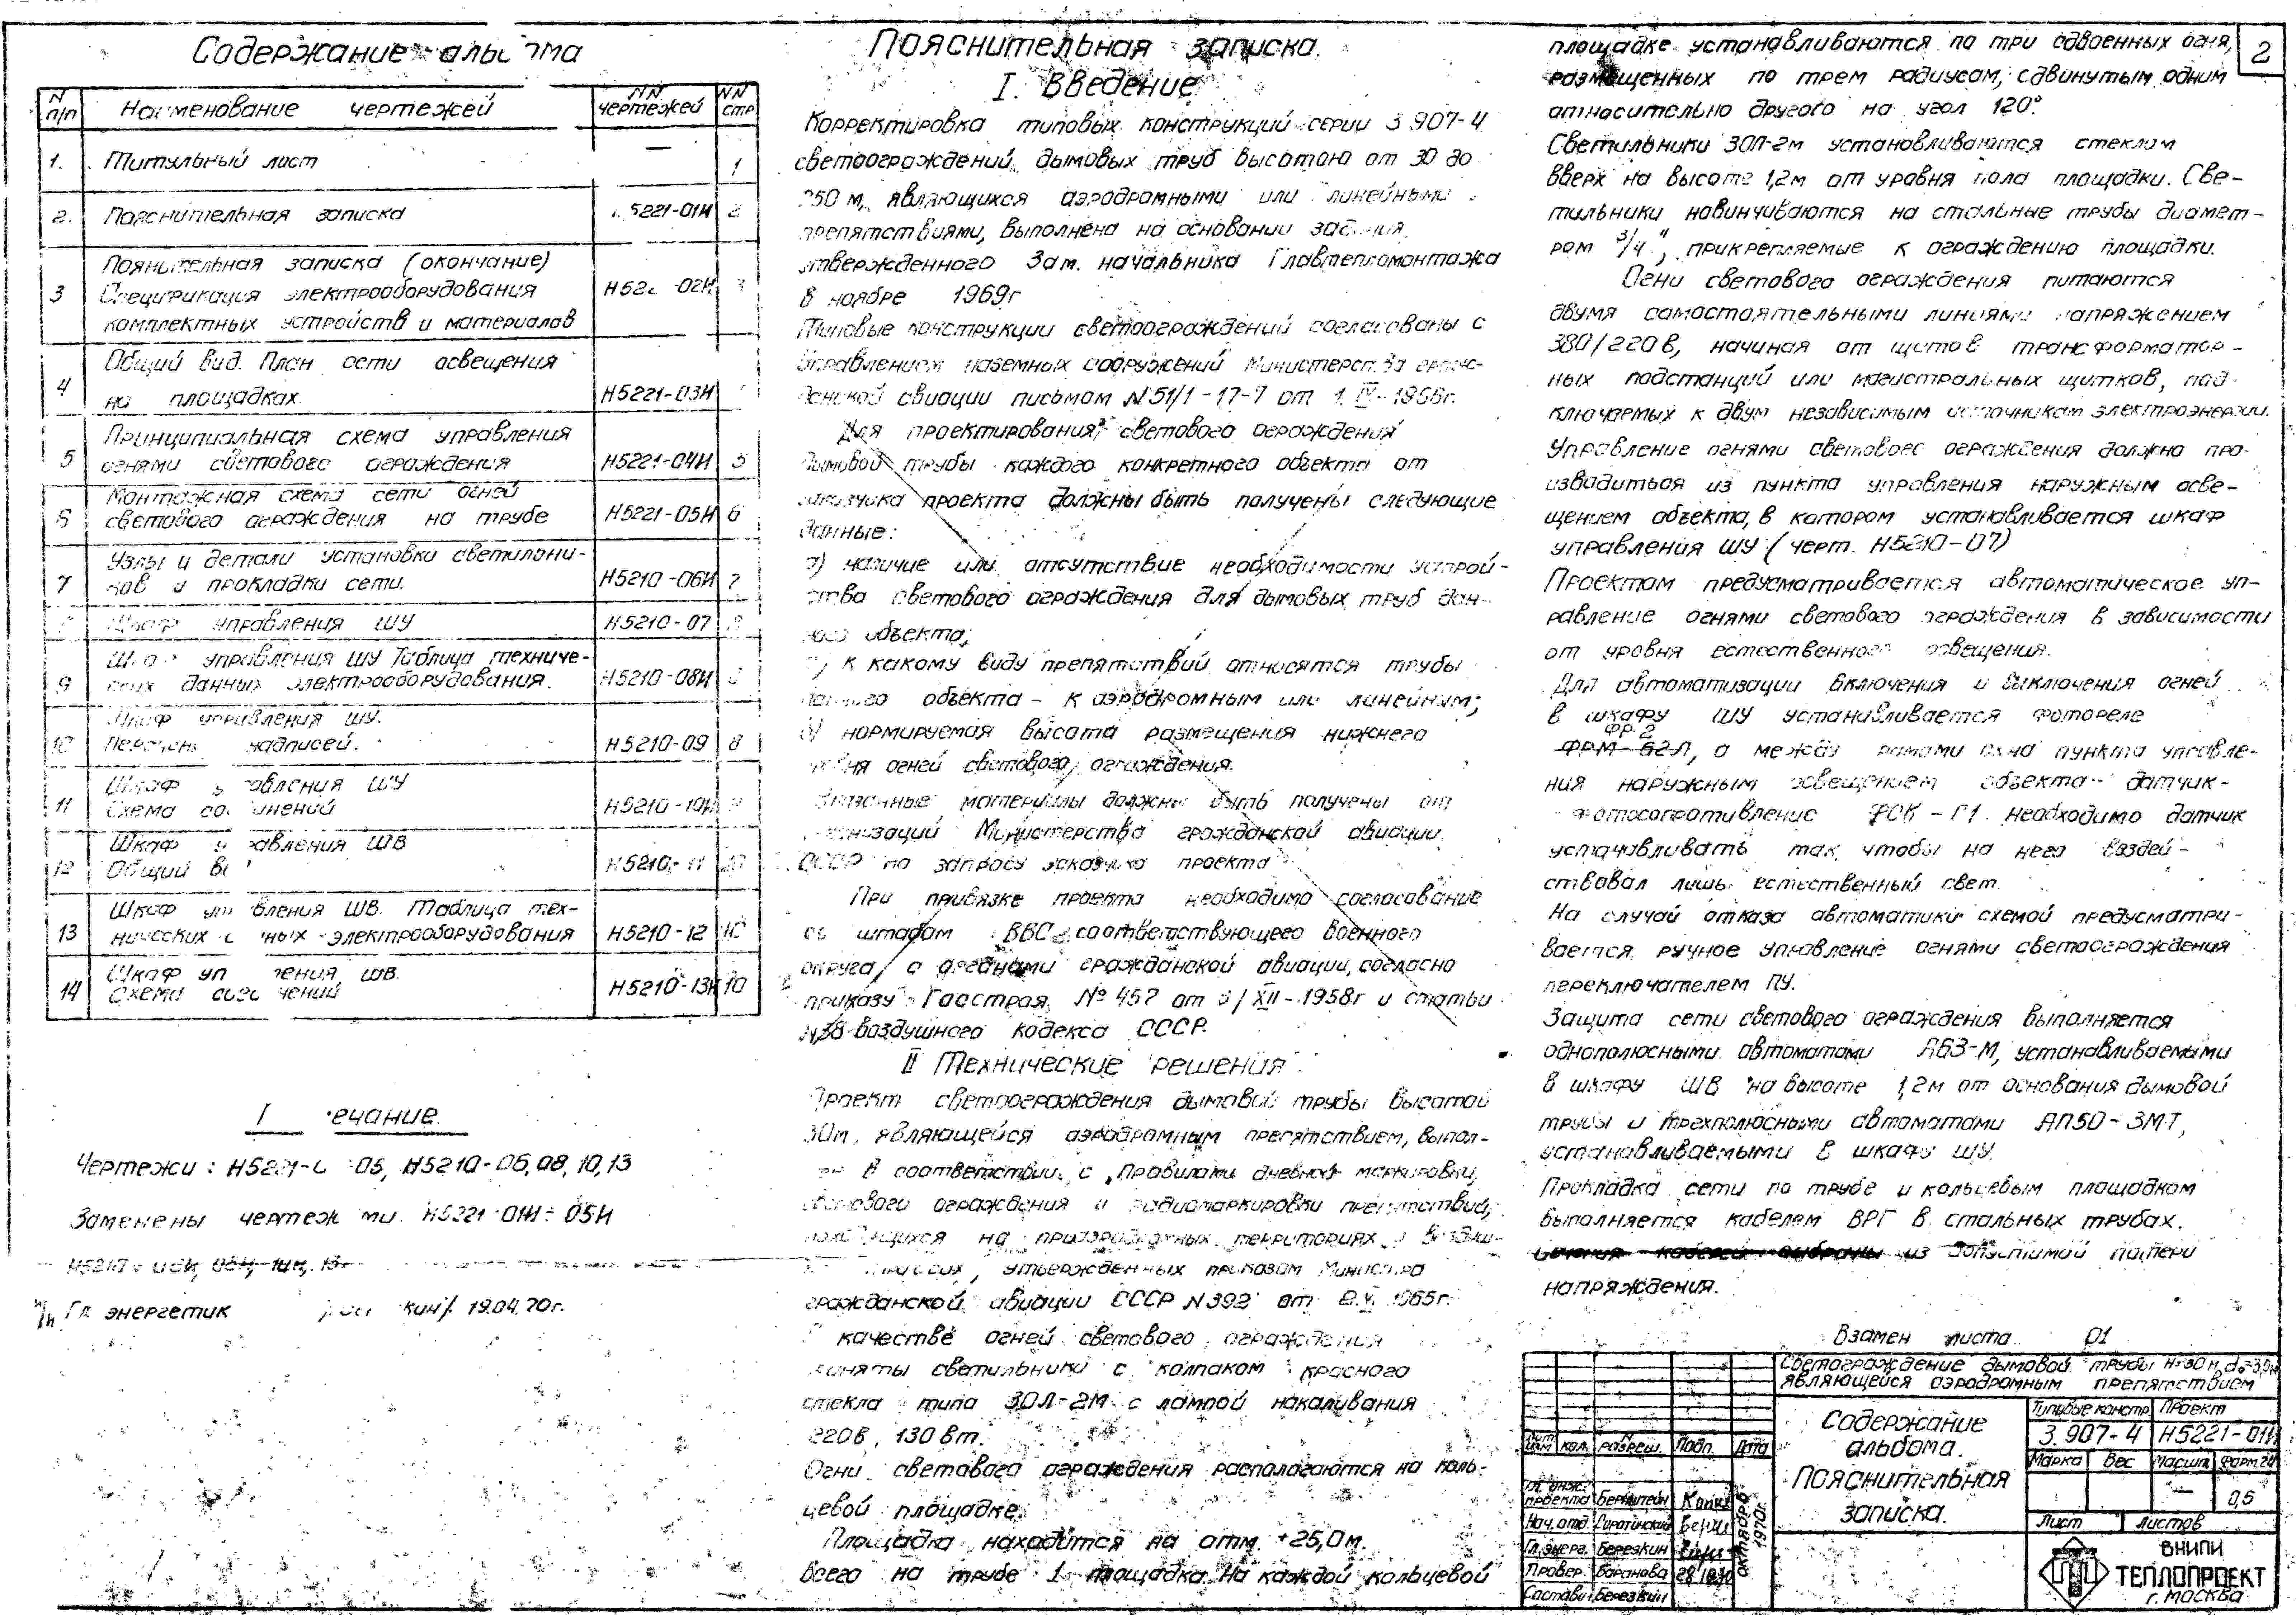 Содержание альбома
N п/п
Наименование чертежей
NN чертежей
NN стр
1. Титульный лист — 1
2. Пояснительная записка 5221-01И 2
Пояснительная записка (окончание)
3 Спецификация электрооборудования Н522 -02И 3
комплектных устройств и материалов
Общий вид. План сети освещения
4 на площадках. Н5221-03И
Принципиальная схема управления
5 огнями светового ограждения Н5221-04И 5
Монтажная схема сети огней
6 светового ограждения на трубе Н5221-05И 6
Узлы и детали установки светильни-
7 ков и прокладки сети. Н5210-06И 7
Шкаф управления ШУ Н5210-07
Шкаф управления ШУ Таблица техниче-
9 ских данных электрооборудования. Н5210-08И
Шкаф управления ШУ.
10 Перечень надписей. Н5210-09 8
Шкаф управления ШУ
11 Схема соединений Н5210-10И
Шкаф управления ШВ
12 Общий Н5210-11 10
Шкаф управления ШВ. Таблица тех-
13 нических данных электрооборудования Н5210-12 10
Шкаф управления ШВ.
14 Схема соединений Н5210-13И 10
ечание.
Чертежи: Н5221- 05, Н5210-06,08,10,13
Заменены чертежами Н5221-01И÷05И
Гл энергетик 19.04.70г.
Пояснительная записка.
I. Введение
Корректировка типовых конструкций серии 3.907-4
светоограждений дымовых труб высотою от 30 до
250 м, являющихся аэродромными или линейными
препятствиями, выполнена на основании задания,
утвержденного Зам. начальника Главтепломонтажа
в ноябре 1969г
Типовые конструкции светоограждений согласованы с
Управлением наземных сооружений Министерства граж-
данской авиации письмом N51/1-17-7 от 1. IV-1966г.
Для проектирования светового ограждения
дымовой трубы каждого конкретного объекта от
заказчика проекта должны быть получены следующие
данные:
а) наличие или отсутствие необходимости устрой-
ства светового ограждения для дымовых труб дан-
ного объекта;
б) к какому виду препятствий относятся трубы
данного объекта - к аэродромным или линейным;
в) нормируемая высота размещения нижнего
уровня огней светового ограждения.
Указанные материалы должны быть получены от
организаций Министерства гражданской авиации
СССР по запросу заказчика проекта
При привязке проекта необходимо согласование
со штабом ВВС соответствующего военного
округа, с органами гражданской авиации, согласно
приказу Госстроя № 457 от /XII-1958г и статьи
N38 Воздушного кодекса СССР.
II Технические решения
Проект светоограждения дымовой трубы высотой
30м, являющейся аэродромным препятствием, выпол-
нен в соответствии с „Правилами дневной маркировки,
светового ограждения и радиомаркировки препятствий,
находящихся на приаэродромных территориях и воздуш-
ных трассах, утвержденных приказом Министра
гражданской авиации СССР N392 от 2.V. 1965г.
В качестве огней светового ограждения
приняты светильники с колпаком красного
стекла типа ЗОЛ-2М с лампой накаливания
220в, 130вт.
Огни светового ограждения располагаются на коль-
цевой площадке.
Площадка находится на отм. +25,0м.
Всего на трубе 1 площадка. На каждой кольцевой
2
площадке устанавливаются по три сдвоенных огня,
размещенных по трем радиусам, сдвинутым одним
относительно другого на угол 120°.
Светильники ЗОЛ-2М устанавливаются стеклом
вверх на высоте 1,2м от уровня пола площадки. Све-
тильники навинчиваются на стальные трубы диамет-
ром 3/4", прикрепляемые к ограждению площадки.
Огни светового ограждения питаются
двумя самостоятельными линиями напряжением
380/220в, начиная от щитов трансформатор-
ных подстанций или магистральных щитков, под-
ключаемых к двум независимым источникам электроэнергии.
Управление огнями светового ограждения должно про-
изводиться из пункта управления наружным осве-
щением объекта, в котором устанавливается шкаф
управления ШУ (черт. Н5210-07)
Проектом предусматривается автоматическое уп-
равление огнями светового ограждения в зависимости
от уровня естественного освещения.
Для автоматизации включения и выключения огней
в шкафу ШУ устанавливается фотореле
ФР-2
ФРМ-62Л, а между рамами окна пункта управле-
ния наружным освещением объекта - датчик-
фотосопротивление ФСК-Г1. Необходимо датчик
устанавливать так, чтобы на него воздей-
ствовал лишь естественный свет.
На случай отказа автоматики схемой предусматри-
вается ручное управление огнями светоограждения
переключателем ПУ.
Защита сети светового ограждения выполняется
однополюсными автоматами А63-М, устанавливаемыми
в шкафу ШВ на высоте 1,2м от основания дымовой
трубы и трехполюсными автоматами АП50-3МТ,
устанавливаемыми в шкафу ШУ.
Прокладка сети по трубе и кольцевым площадкам
выполняется кабелем ВРГ в стальных трубах.
Сечения кабелей выбраны из допустимой потери
напряжения.
Взамен листа 01
Светограждение дымовой трубы Н=30м, d₀=3,0м
являющейся аэродромным препятствием
Содержание
альбома.
Пояснительная
записка.
Типовые констр. Проект
3.907-4 Н5221-01И
Марка Вес Масшт. Форм 24
— 0,5
Лист Листов
ВНИПИ
ТЕПЛОПРОЕКТ
г. Москва
Лит изм кол. N разреш. Подп. Дата
Гл. инж. проекта Бернштейн
Нач. отд.
Гл. энерг. Березкин
Провер. Баранова
Состави. Березкин
октябрь 1970г.